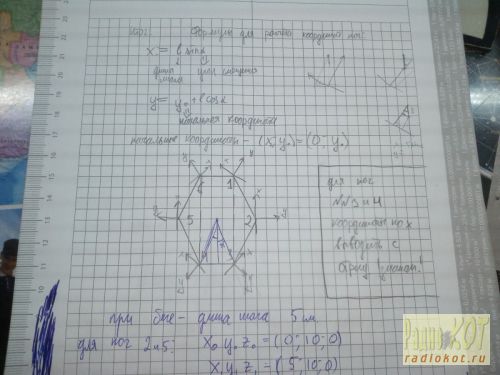 Формулы для расчёта координат ног:
x = l sinα
длина шага угол
y = y₀ + l cosα
начальная координата
начальные координаты - (x₀ y₀) = (0; y₀)
y x
6 1
5 2
для ног
№№ 3 и 4
координаты по x
выводить с
отриц.
при беге - длина шага 5 см
для ног 2 и 5: x₀ y₀ z₀ = (0; 10; 0)
x₁ y₁ z₁ = (5; 10; 0)
РадиоКОТ
radiokot.ru